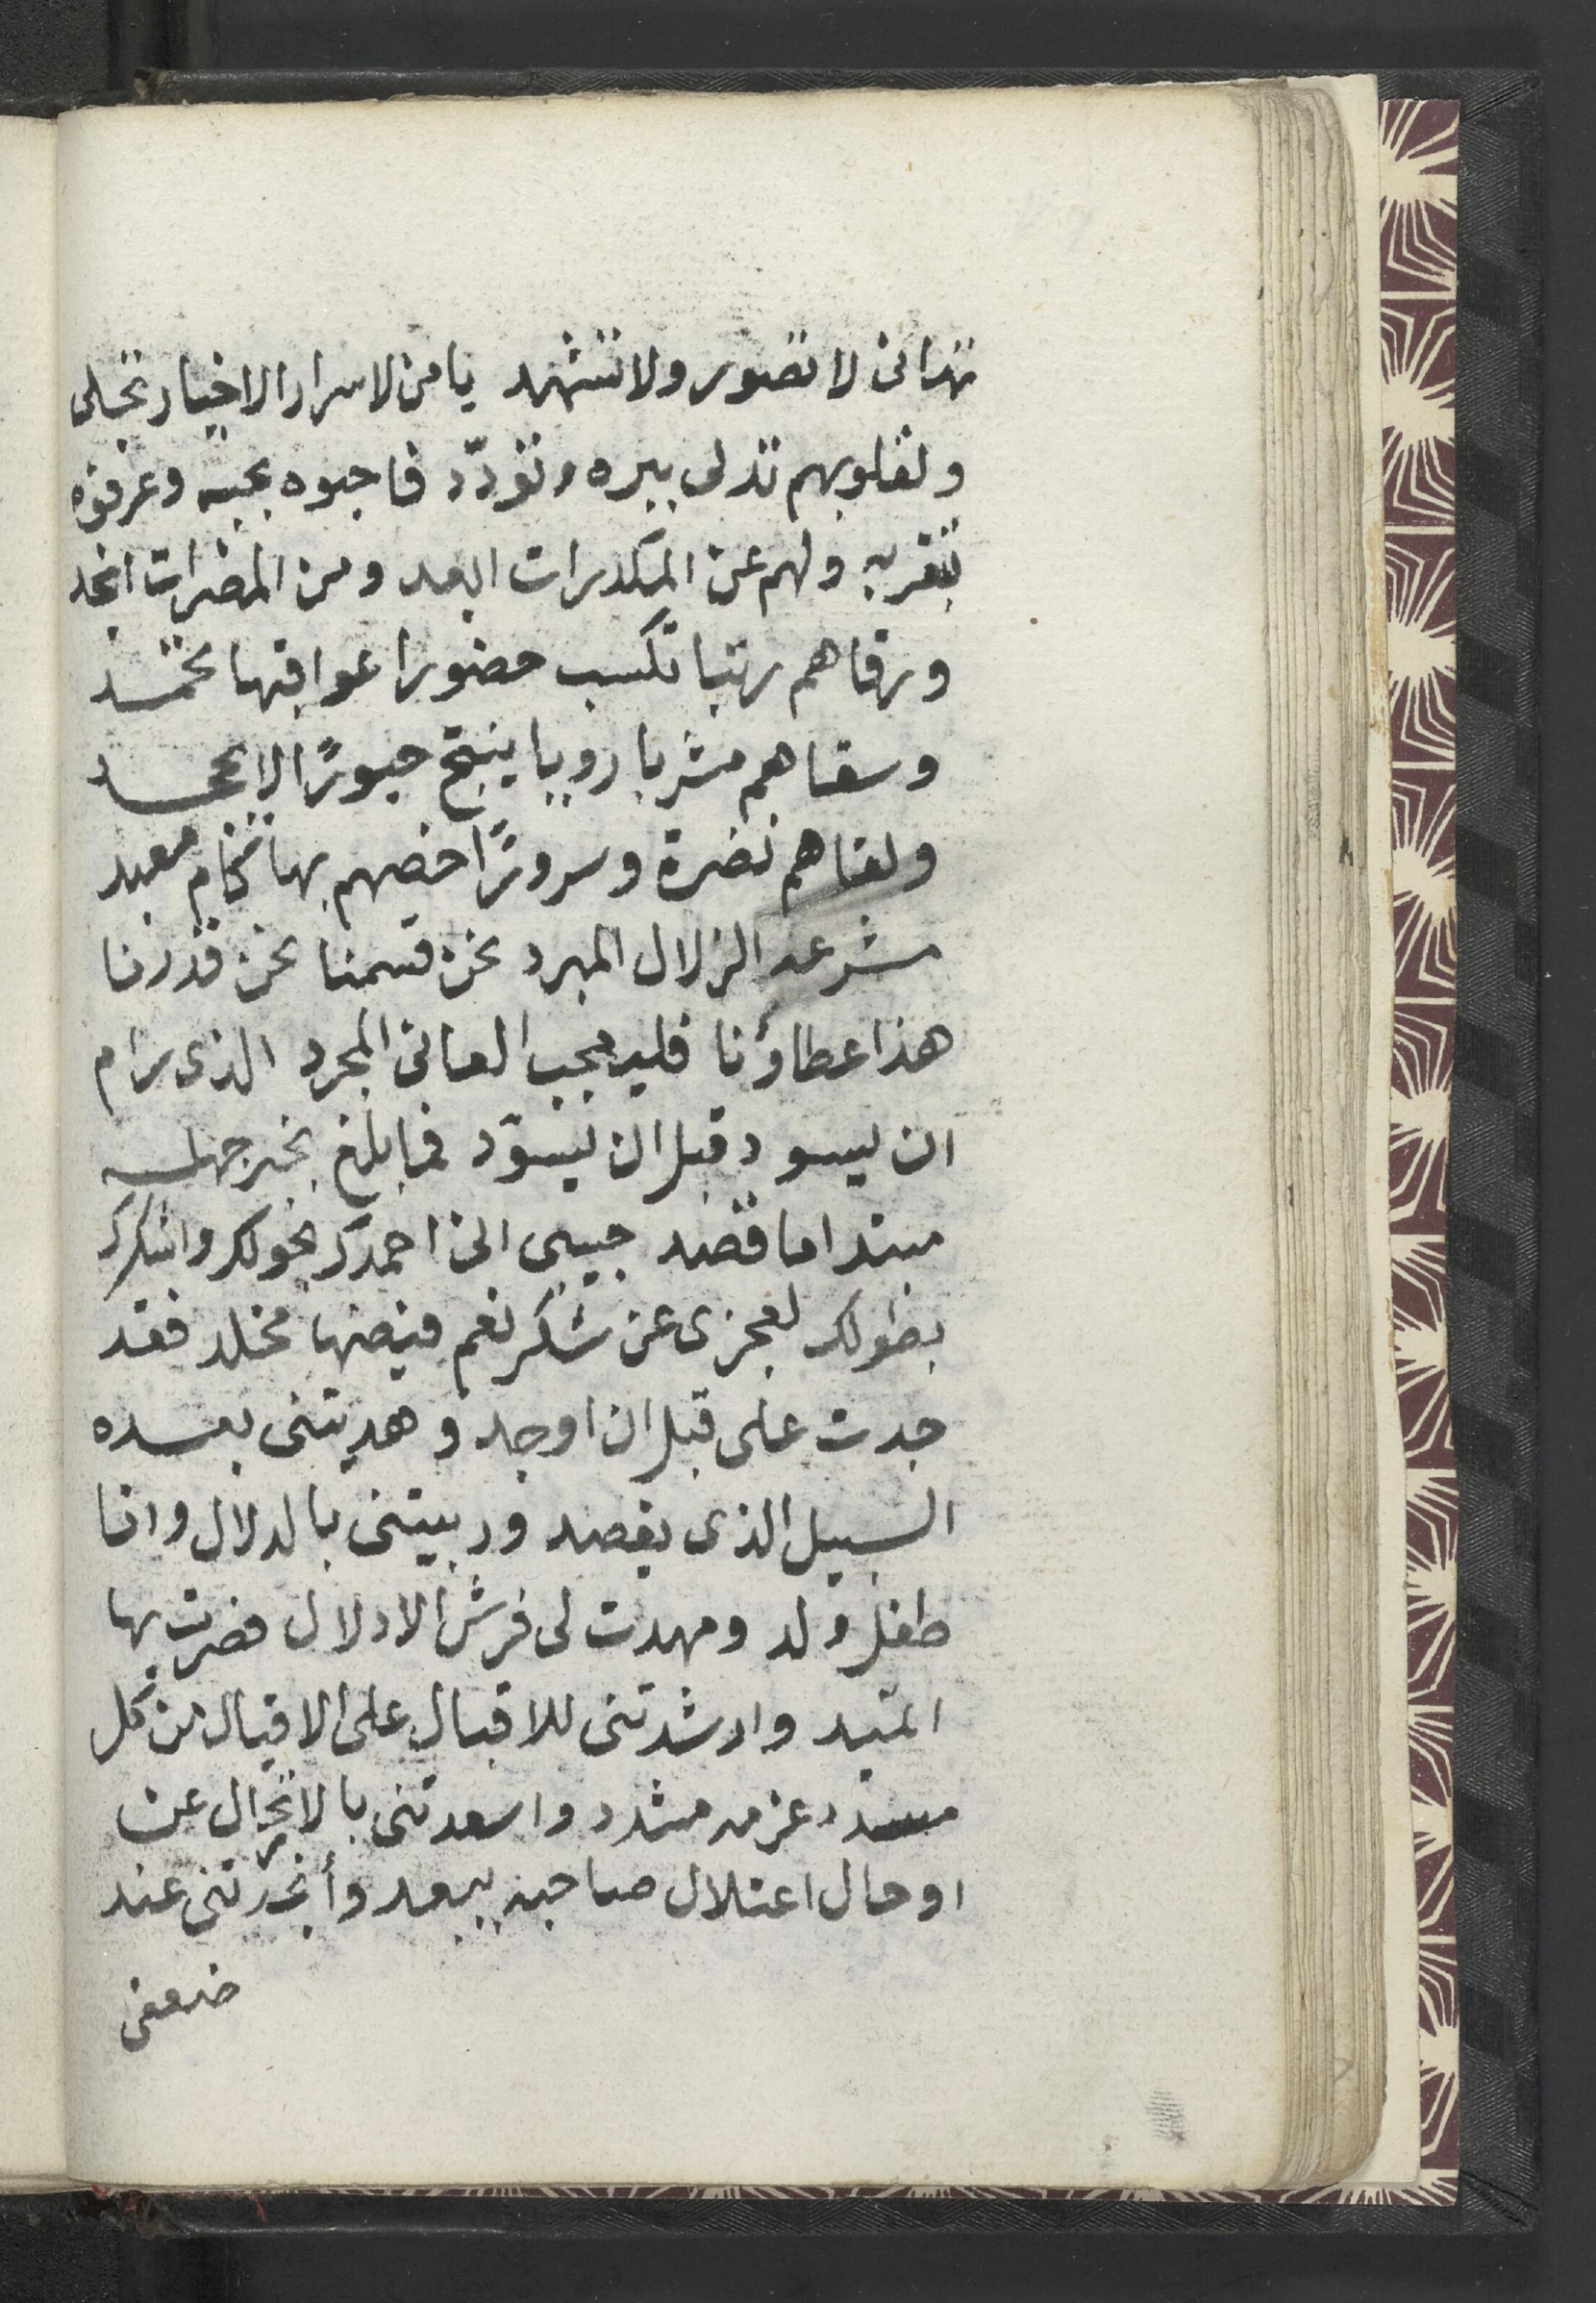 تهانى لا تصور ولا تشهد يا من لاسرار الاخيار تجلى
ولقلوبهم تدلى ببره وتودّد فاحبوه بحبه وعرفوه
بتقربه ولهم عن المكدرات ابعد ومن المضرات انجد
ورقاهم رتبا تكسب حضورا عواقبها تحمد
وسقاهم مشربا رويا ينتج حبورًا لا يجحد
ولقاهم نضرة وسرورًا خصهم بها تخام معبد
مشرعه الزلال المبرد نحن قسمنا نحن قدرنا
هذا عطاؤنا فليعجب العانى المجرد الذى رام
ان يسود قبل ان يسوّد فما بلغ بخبر جهله
مبتدا ما قصد حبيبى انى احمدك بحولك واشكرك
بطولك لعجزى عن شكر نعم فيضها مخلد فقد
جدت على قبل ان اوجد وهديتنى بعده
السبيل الذى يقصد وربيتنى بالدلال وانا
طفل ولد ومهدت لى فرش الادلال فصرت بها
المقيد وارشدتنى للاقبال على الاقيال من كل
مسدد عزمه مشدد واسعدتنى بالانخزال عن
اوحال اعتلال صاحبه يبعد وأنجدتنى عند
ضعفى